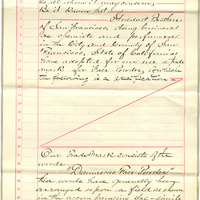 To all whom it may concern
Be it known that
Stoddart Brothers
of San Francisco, doing business
as chemists and perfumers
in the City and County of San
Francisco, State of California
have adopted for our use a Trade
Mark for Face Powder, of which
the following is a specification
Our Trade Mark consists of the
words
Face Powder"
These words have generally been
arranged upon a field as shown
in the accompanying fac-simile